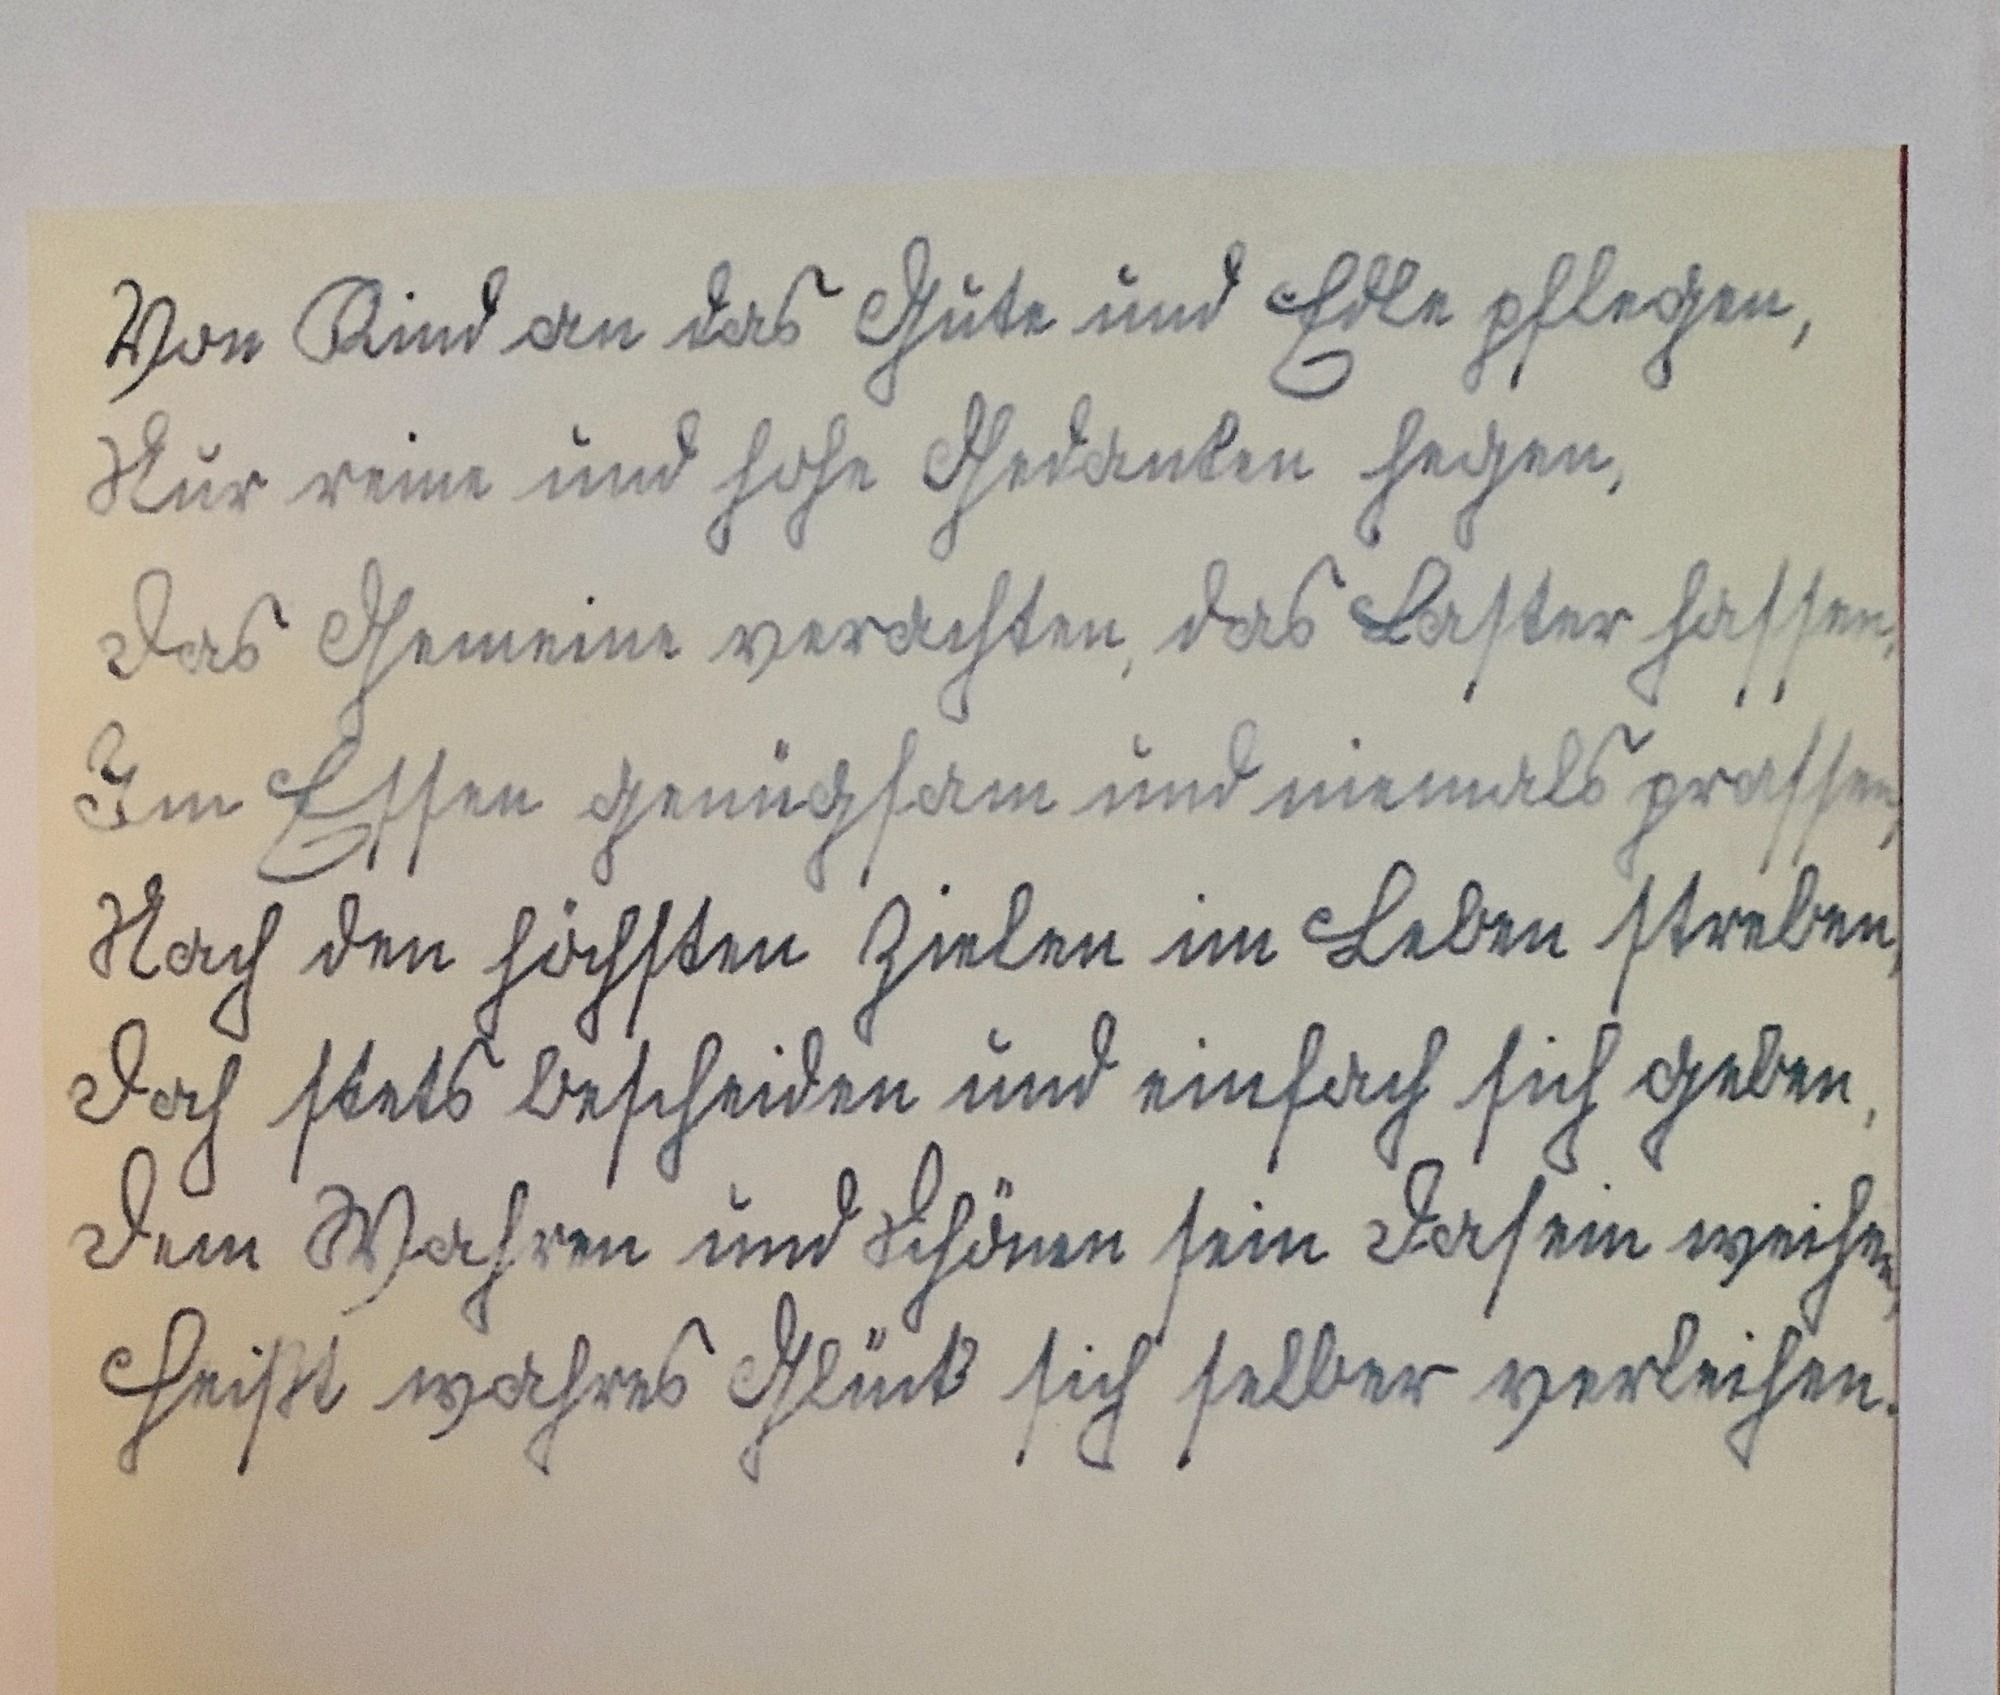 Von Kind an das Gute und Edle pflegen,
Nur reine und hohe Gedanken hegen,
Das Gemeine verachten, das Laster hassen,
Im Essen genügsam und niemals prassen,
Nach den höchsten Zielen im Leben streben,
Doch stets bescheiden und einfach sich geben,
Dem Wahren und Schönen sein Dasein weihen,
Heißt wahres Glück sich selber verleihen.